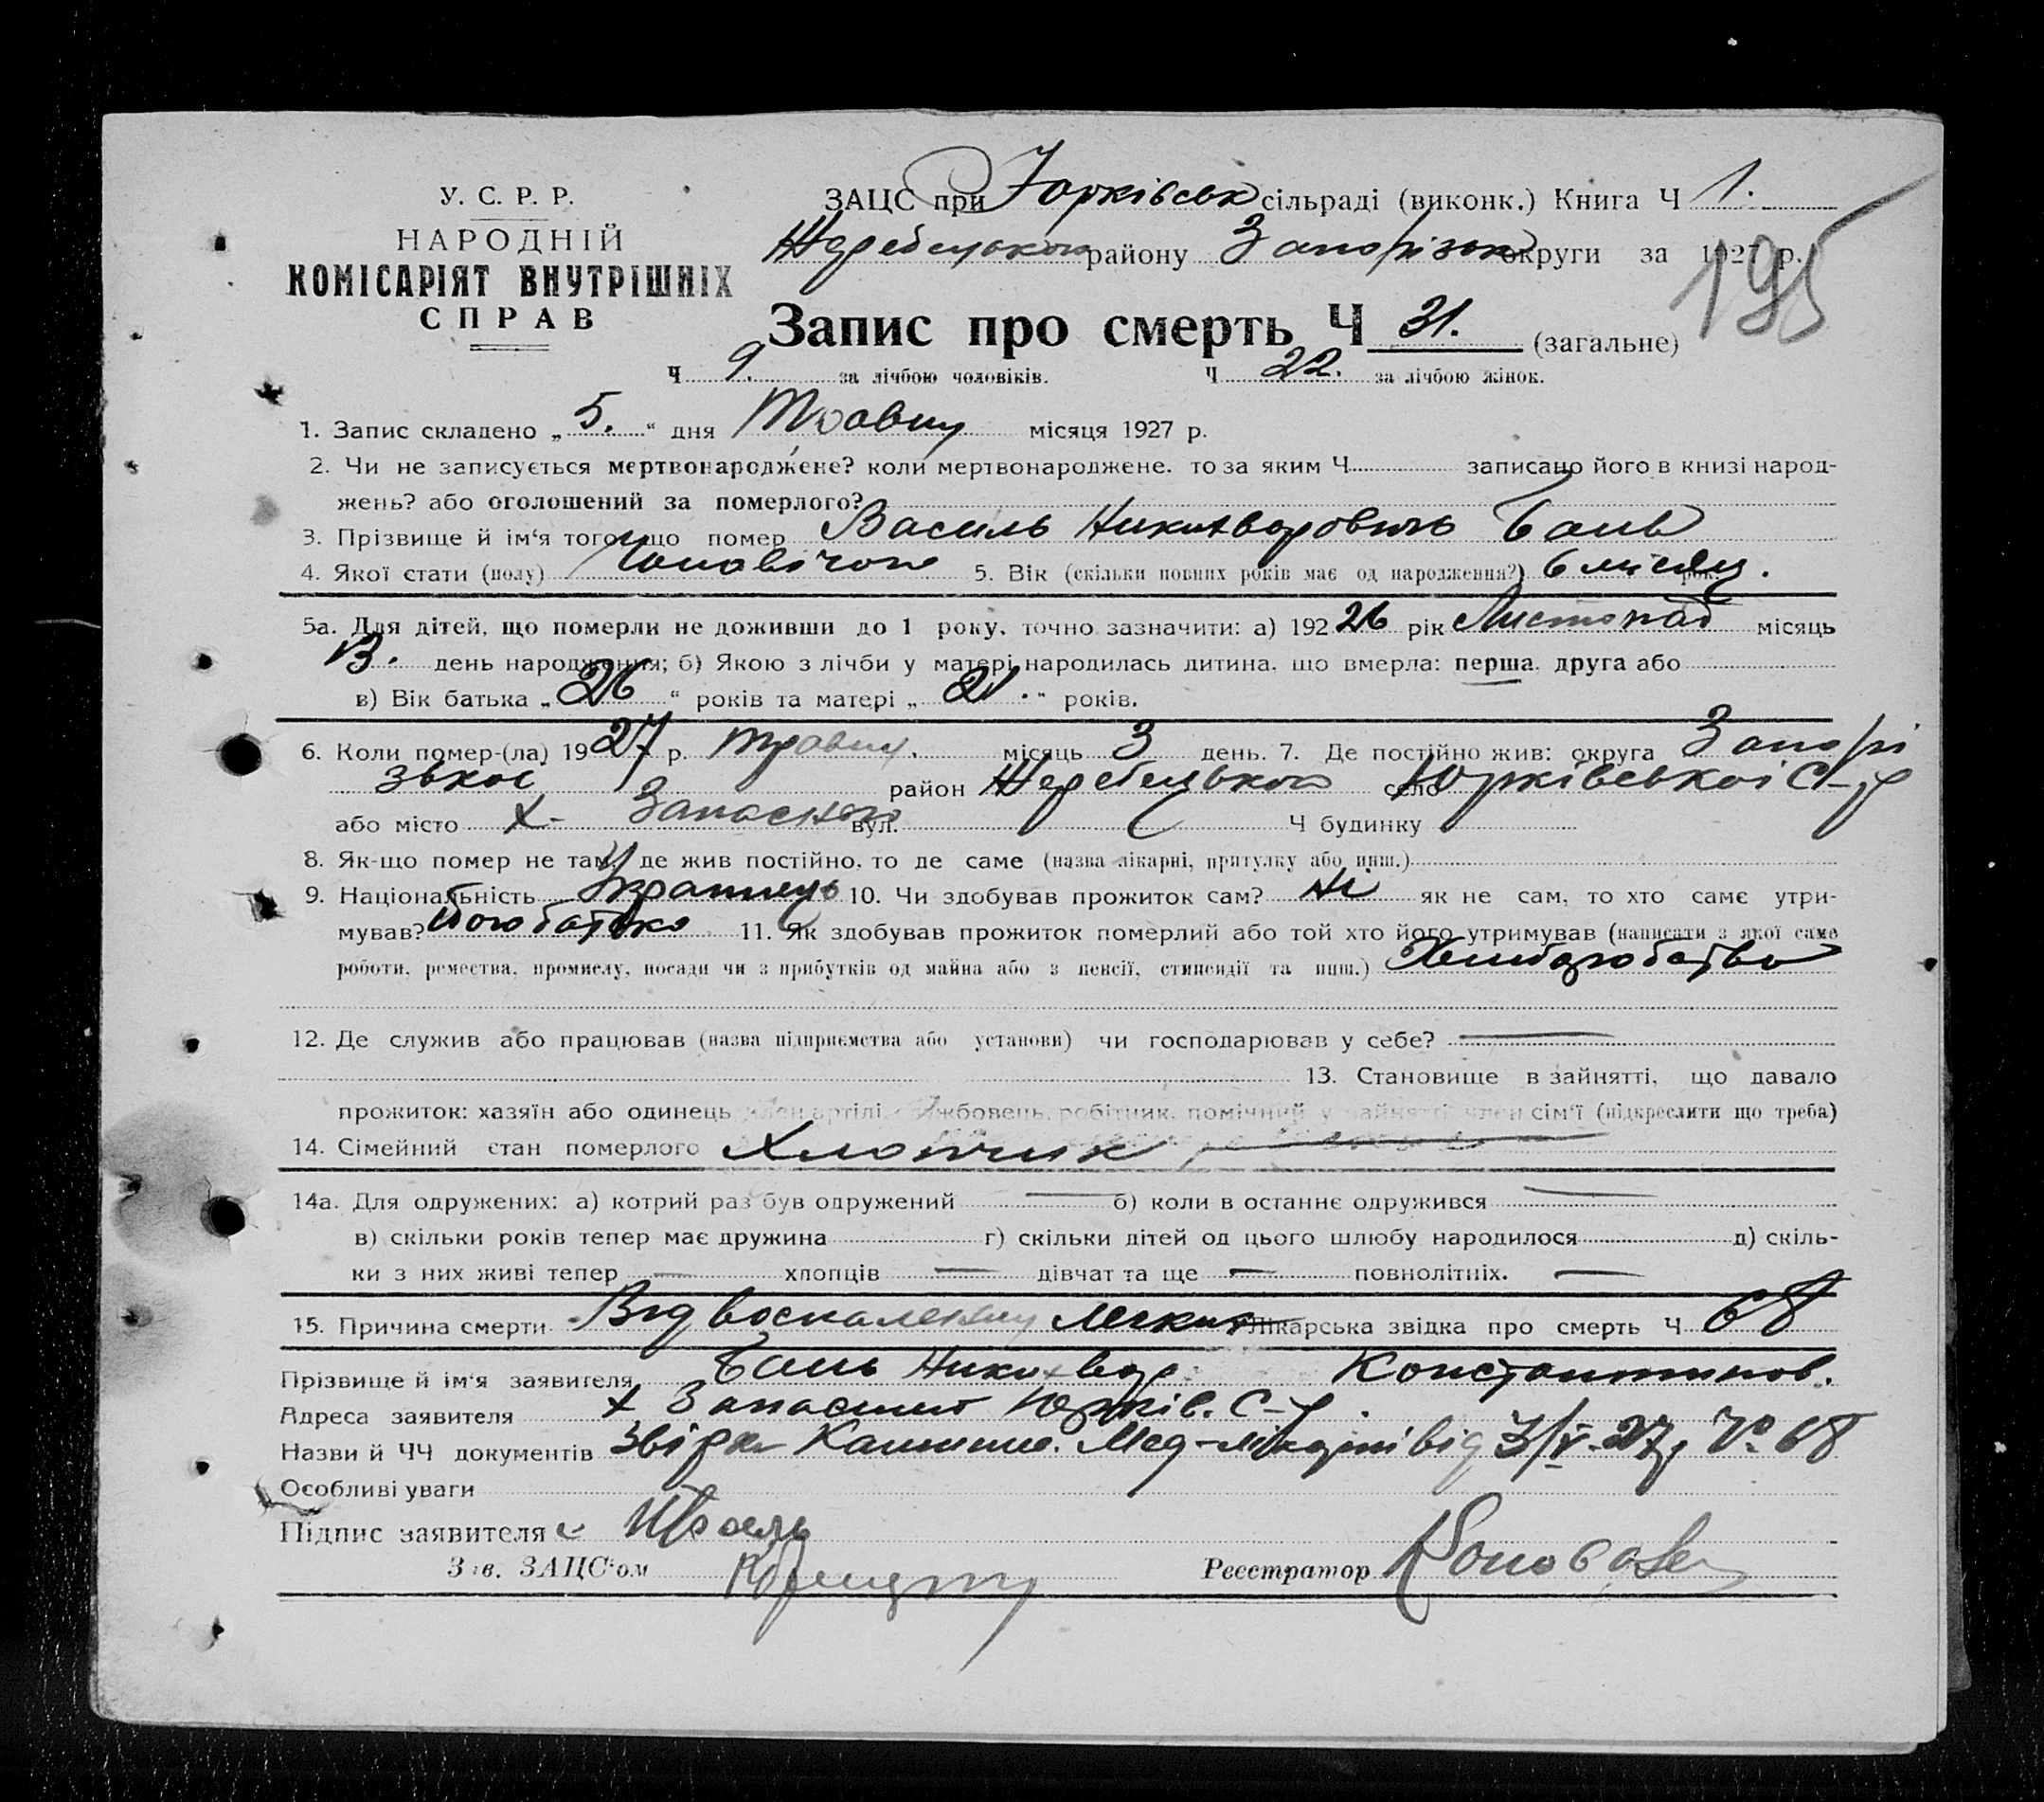 У. С. Р. Р.
НАРОДНІЙ
КОМІСАРІЯТ ВНУТРІШНІХ
СПРАВ
ЗАЦС при Юрківськ сільраді (виконк.) Книга Ч 1.
Жеребецького району Запорізьк округи за 1927 р.
195
Запис про смерть Ч 31. (загальне)
Ч 9. за лічбою чоловіків. Ч 22. за лічбою жінок.
1. Запис складено „ 5. “ дня Травня місяця 1927 р.
2. Чи не записується мертвонароджене? коли мертвонароджене. то за яким Ч записано його в книзі народ-
жень? або оголошений за померлого?
3. Прізвище й ім‘я того, що помер Василь Никихворовичь Бань
4. Якої стати (полу) Чоловічої 5. Вік (скільки повних років має од народження?) 6 місяц. рок.
5а. Для дітей, що померли не доживши до 1 року. точно зазначити: а) 192 26 рік Листопад місяць
день народження; б) Якою з лічби у матері народилась дитина. що вмерла: перша. друга або
в) Вік батька „ 26 “ років та матері „ 21. “ років.
6. Коли помер-(ла) 19 27 р. травня. місяць 3 день. 7. Де постійно жив: округа Запорі
зької район Жеребецького село Юрківської С-р
або місто х. Запасного вул. Ч будинку
8. Як-що помер не там, де жив постійно. то де саме (назва лікарні, притулку або инш.)
9. Національність Українець 10. Чи здобував прожиток сам? Ні як не сам, то хто саме утри-
мував? його батько 11. Як здобував прожиток померлий або той хто його утримував (написати з якої саме
роботи, ремества, промислу, посади чи з прибутків од майна або з пенсії, стипендії та инш.) Хлиборобство
12. Де служив або працював (назва підприємства або установи) чи господарював у себе?
13. Становище в зайнятті, що давало
прожиток: хазяїн або одинець член артілі, службовець, робітник, помічний у зайнятті член сім‘ї (підкреслити що треба)
14. Сімейний стан померлого Хлопчик
14а. Для одружених: а) котрий раз був одружений б) коли в останнє одружився
в) скільки років тепер має дружина г) скільки дітей од цього шлюбу народилося д) скіль-
ки з них живі тепер хлопців дівчат та ще повнолітніх.
15. Причина смерти Від воспалення легких Лікарська звідка про смерть Ч 68
Прізвище й ім‘я заявителя Бань Никихвор Константинов.
Адреса заявителя х Запасний Юрків. С-р.
Назви й ЧЧ документів від 3/V-27р № 68
Особливі уваги
Підпис заявителя
Зав. ЗАЦС‘ом
Реєстратор